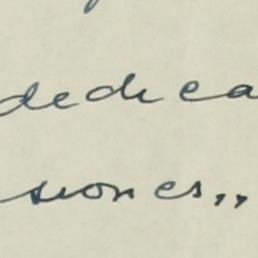 dedica
siones,,